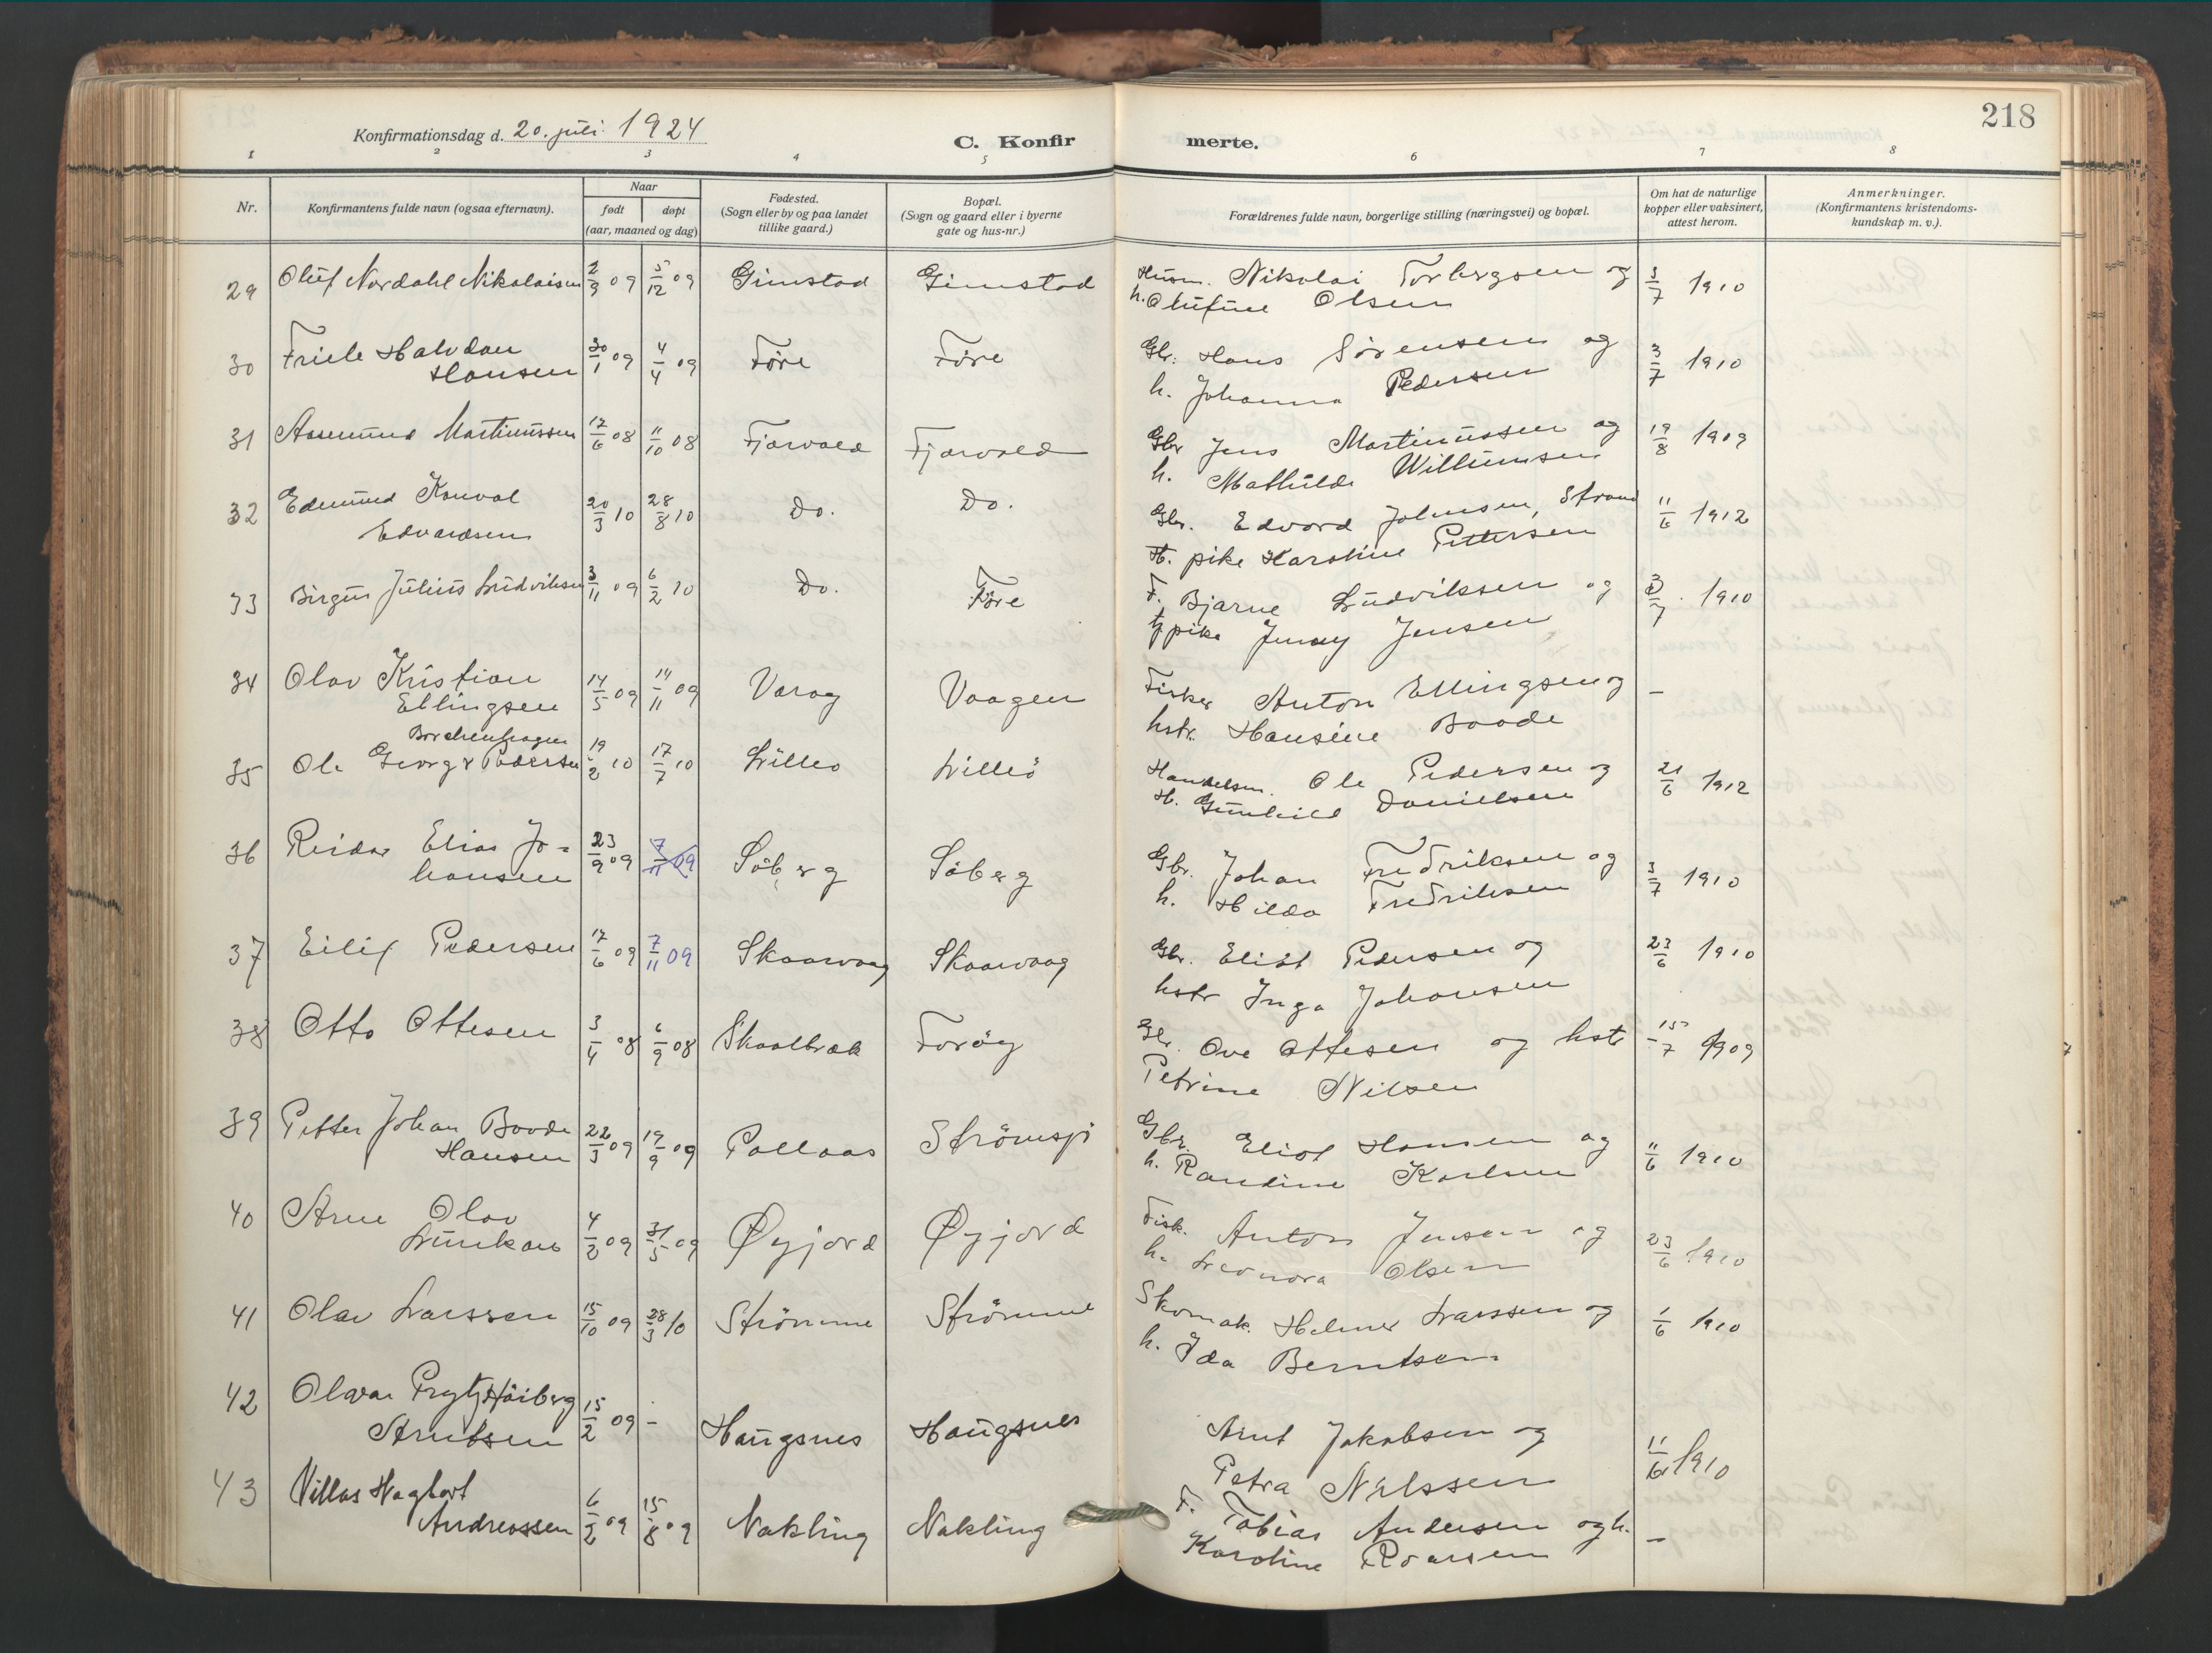 218
Konfirmationsdag d. 20. juli 1924
C. Konfirmerte.
1 2 3 4 5 6 7 8
Nr. Konfirmantens fulde navn (ogsaa efternavn). Naar født døpt (aar, maaned og dag) Fødested. (Sogn eller by og paa landet tillike gaard.) Bopæl. (Sogn og gaard eller i byerne gate og hus-nr.) Forældrenes fulde navn, borgerlige stilling (næringsvei) og bopæl. Om hat de naturlige kopper eller vaksinert, attest herom. Anmerkninger. (Konfirmantens kristendoms-kundskap m. v.).
29 Oluf Nordahl Nikolaisen 2/9 09 5/12 09 Gimstad Gimstad Husm. Nikolai Torbergsen og 3/7 1910
h. Olufine Olsen
30 Friele Halvdan 30/1 09 4/4 09 Føre Føre Gbr. Hans Sørensen og 3/7 1910
Hansen h. Johanna Pedersen
31 Aasmund Martinussen 17/6 08 11/10 08 Fjærvold Fjærvold Gbr Jens Martinussen og 19/8 1909
h. Mathilde Willumsen
32 Edmund Konval 20/3 10 28/8 10 Do. Do. Gbr. Edvard Johnsen, Strand 11/6 1912
Edvardsen H. pike Karoline Pettersen
33 Birger Julius Ludviksen 3/11 09 6/2 10 Do. Føre F. Bjarne Ludvikssen og 3/7 1910
tj pike Jenny Jensen
34 Olav Kristian 14/5 09 14/11 09 Vorøy Vaagen Fisker Anton Ellingsen og –
Ellingsen hstr. Hansine Baade
Borchenhagen
35 Ole Georg Pedersen 19/2 10 17/7 10 Lillø Lillø Handelsm. Ole Pedersen og 21/6 1912
H. Gunhild Danielsen
36 Reidar Elias Jo- 23/9 09 7/11 09 Söberg Söberg Gbr. Johan Fredriksen og 3/7 1910
hansen h. Hilda Fredriksen
37 Eilif Pedersen 17/6 09 7/11 09 Skaarvaag Skaarvaag Gbr. Eliot Pedersen og 23/6 1910
hstr Inga Johansen
38 Otto Ottesen 3/4 08 6/9 08 Skaalbræk Forøy Gbr. Ove Ottesen og hstr 15/7 1909
Petrine Nilsen
39 Petter Johan Baade 22/3 09 19/9 09 Pollaas Strømsjø Gbr. Eliot Hansen og 11/6 1910
Hansen h. Randine Karlsen
40 Arne Olav 4/2 09 31/5 09 Øyjord Øyjord Fisk. Anton Jensen og 23/6 1910
Lunkan h. Leonora Olsen
41 Olav Larssen 15/10 09 28/3 10 Strömme Strömme Skomak. Helmer Larssen og 1/6 1910
h. Ida Berntsen
42 Olvar Prytz Høiberg 15/2 09 – Haugsnes Haugsnes Arnt Jakobsen og 11/6 1910
Arntsen Petra Nilssen
43 Villas Hagbart 6/2 09 15/8 09 Nakling Nakling F. Tobias Andersen og h. –
Andreassen Karoline Roarsen